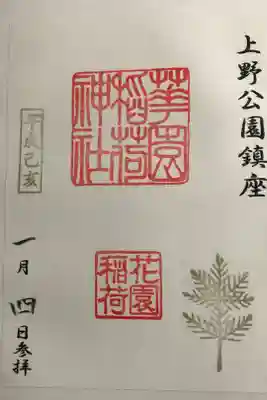 上野公園鎮座
華園
稲荷
神社
花園
稲荷
平成己亥
一月四日参拝